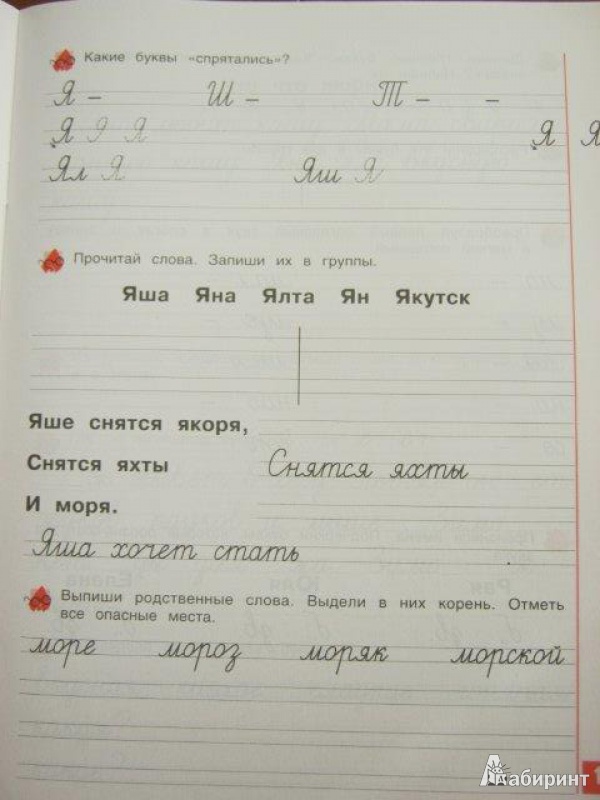 Какие буквы «спрятались»?
Я – Ш – Т – –
Я Я Я Я Я
Ял Я Яш Я
Прочитай слова. Запиши их в группы.
Яша Яна Ялта Ян Якутск
Яше снятся якоря,
Снятся яхты Снятся яхты
И моря.
Яша хочет стать .
Выпиши родственные слова. Выдели в них корень. Отметь
все опасные места.
море мороз моряк морской
Лабиринт